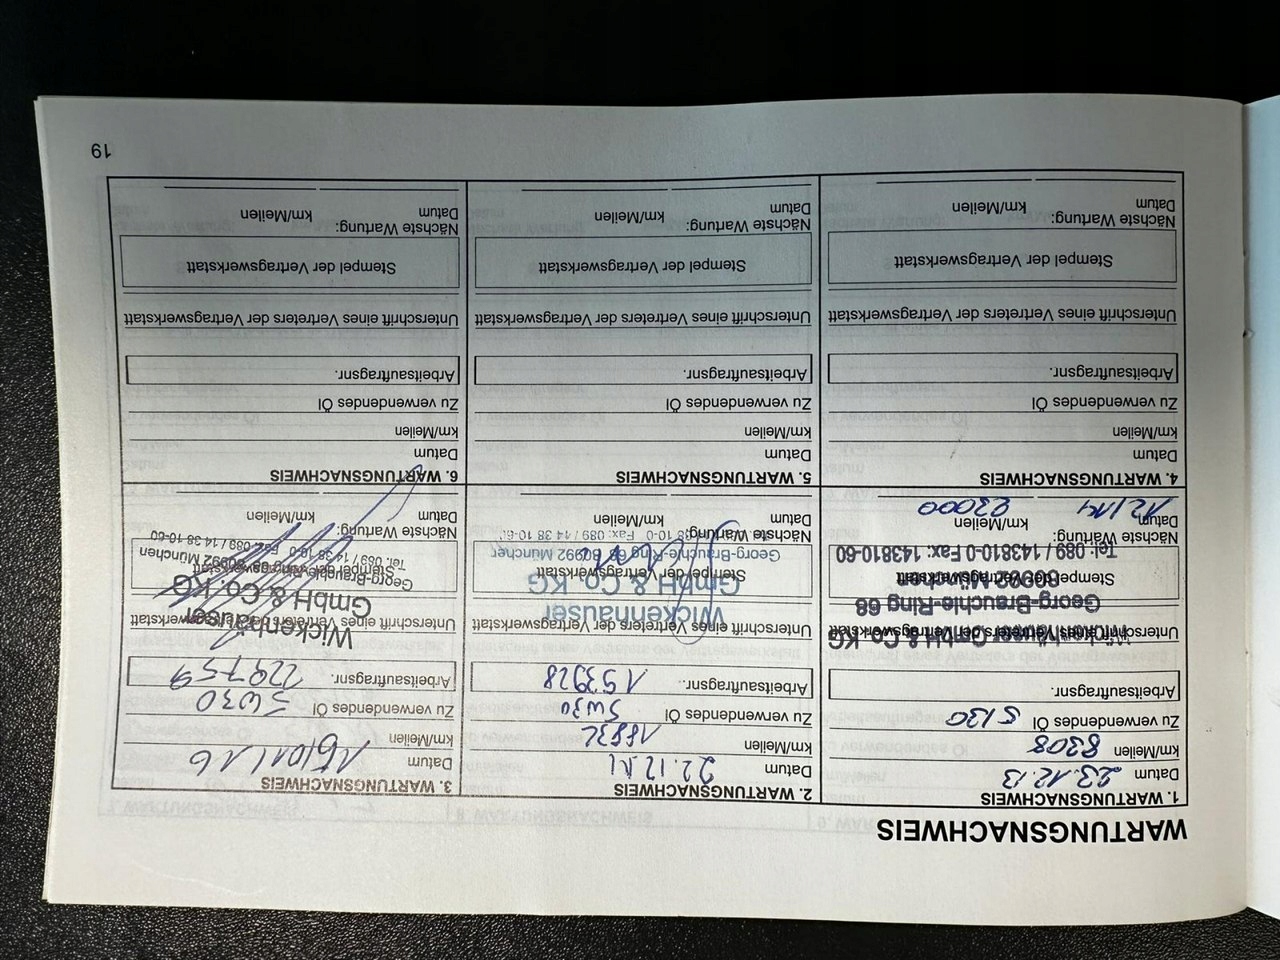 WARTUNGSNACHWEIS
1. WARTUNGSNACHWEIS
Datum 23.12.13
km/Meilen 8308
Zu verwendendes Öl 5/30
Arbeitsauftragsnr.
Unterschrift eines Vertreters der Vertragswerkstatt
Wickenhäuser GmbH & Co. KG
Georg-Brauchle-Ring 68
Stempel der Vertragswerkstatt
80992 München
Tel: 089 / 143810-0 Fax: 143810-60
Nächste Wartung:
Datum 12/14 km/Meilen 23000
2. WARTUNGSNACHWEIS
Datum 22.12.14
km/Meilen
Zu verwendendes Öl 5W30
Arbeitsauftragsnr. 153928
Unterschrift eines Vertreters der Vertragswerkstatt
Wickenhäuser
GmbH & Co. KG
Stempel der Vertragswerkstatt
Georg-Brauchle-Ring 68 80992 München
Fax: 089 / 14 38 10-60
Nächste Wartung:
Datum km/Meilen
3. WARTUNGSNACHWEIS
Datum 15/01/16
km/Meilen
Zu verwendendes Öl 5W30
Arbeitsauftragsnr. 229759
Unterschrift eines Vertreters der Vertragswerkstatt
Wickenhäuser
GmbH & Co. KG
Stempel der Vertragswerkstatt
Georg-Brauchle-Ring 68 80992 München
Tel. 089 / 14 38 10-0 Fax: 089 / 14 38 10-60
Nächste Wartung:
Datum km/Meilen
4. WARTUNGSNACHWEIS
Datum
km/Meilen
Zu verwendendes Öl
Arbeitsauftragsnr.
Unterschrift eines Vertreters der Vertragswerkstatt
Stempel der Vertragswerkstatt
Nächste Wartung:
Datum km/Meilen
5. WARTUNGSNACHWEIS
Datum
km/Meilen
Zu verwendendes Öl
Arbeitsauftragsnr.
Unterschrift eines Vertreters der Vertragswerkstatt
Stempel der Vertragswerkstatt
Nächste Wartung:
Datum km/Meilen
6. WARTUNGSNACHWEIS
Datum
km/Meilen
Zu verwendendes Öl
Arbeitsauftragsnr.
Unterschrift eines Vertreters der Vertragswerkstatt
Stempel der Vertragswerkstatt
Nächste Wartung:
Datum km/Meilen
19